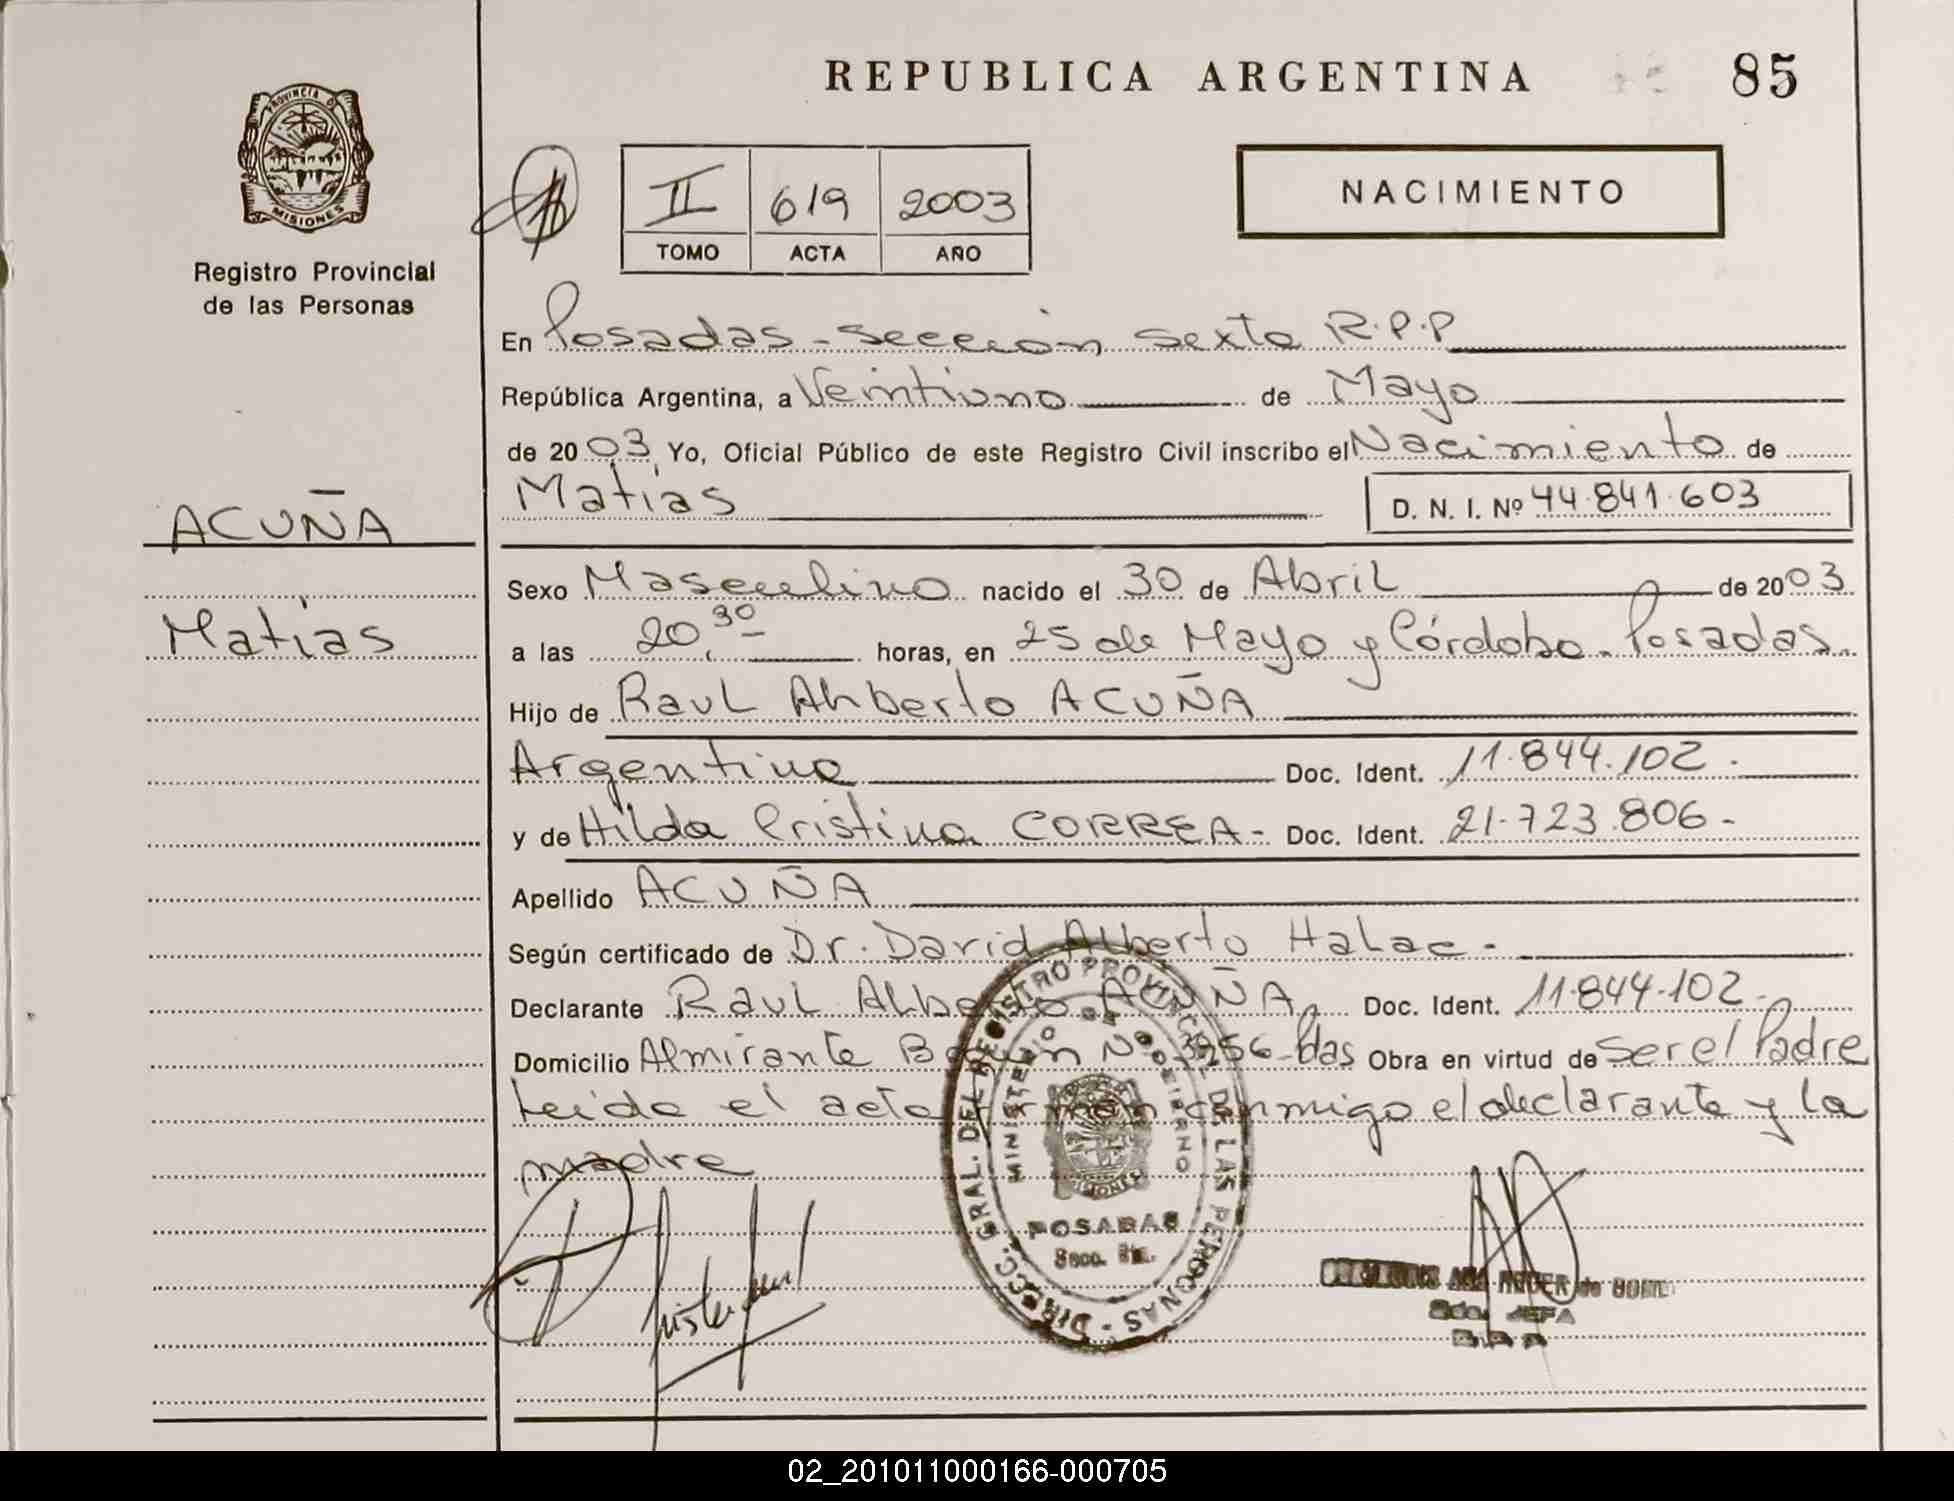 REPUBLICA ARGENTINA
85
PROVINCIA DE
MISIONES
Registro Provincial
de las Personas
II 619 2003
TOMO ACTA AÑO
NACIMIENTO
En Posadas - Sección Sexta R.P.P
República Argentina, a Veintiuno de Mayo
de 2003 Yo, Oficial Público de este Registro Civil inscribo el Nacimiento de
Matías
D. N. I. Nº 44.841.603
ACUÑA
Matías
Sexo Masculino nacido el 30 de Abril de 2003
a las 20,30 horas, en 25 de Mayo y Córdoba - Posadas.
Hijo de Raul Alberto ACUÑA
Argentino Doc. Ident. 11.844.102.
y de Hilda Cristina CORREA - Doc. Ident. 21.723.806-
Apellido ACUÑA
Según certificado de Dr. David Alberto Halac -
Declarante Raul Alberto ACUÑA, Doc. Ident. 11.844.102-
Domicilio Almirante Nº 3956 - Pdas Obra en virtud de Ser el Padre
Leida el acta firman conmigo el declarante y la
madre
DIRECC. GRAL. DEL REGISTRO PROVINCIAL DE LAS PERSONAS
MINISTERIO DE GOBIERNO
POSADAS
Secc.
JEFA
02_201011000166-000705